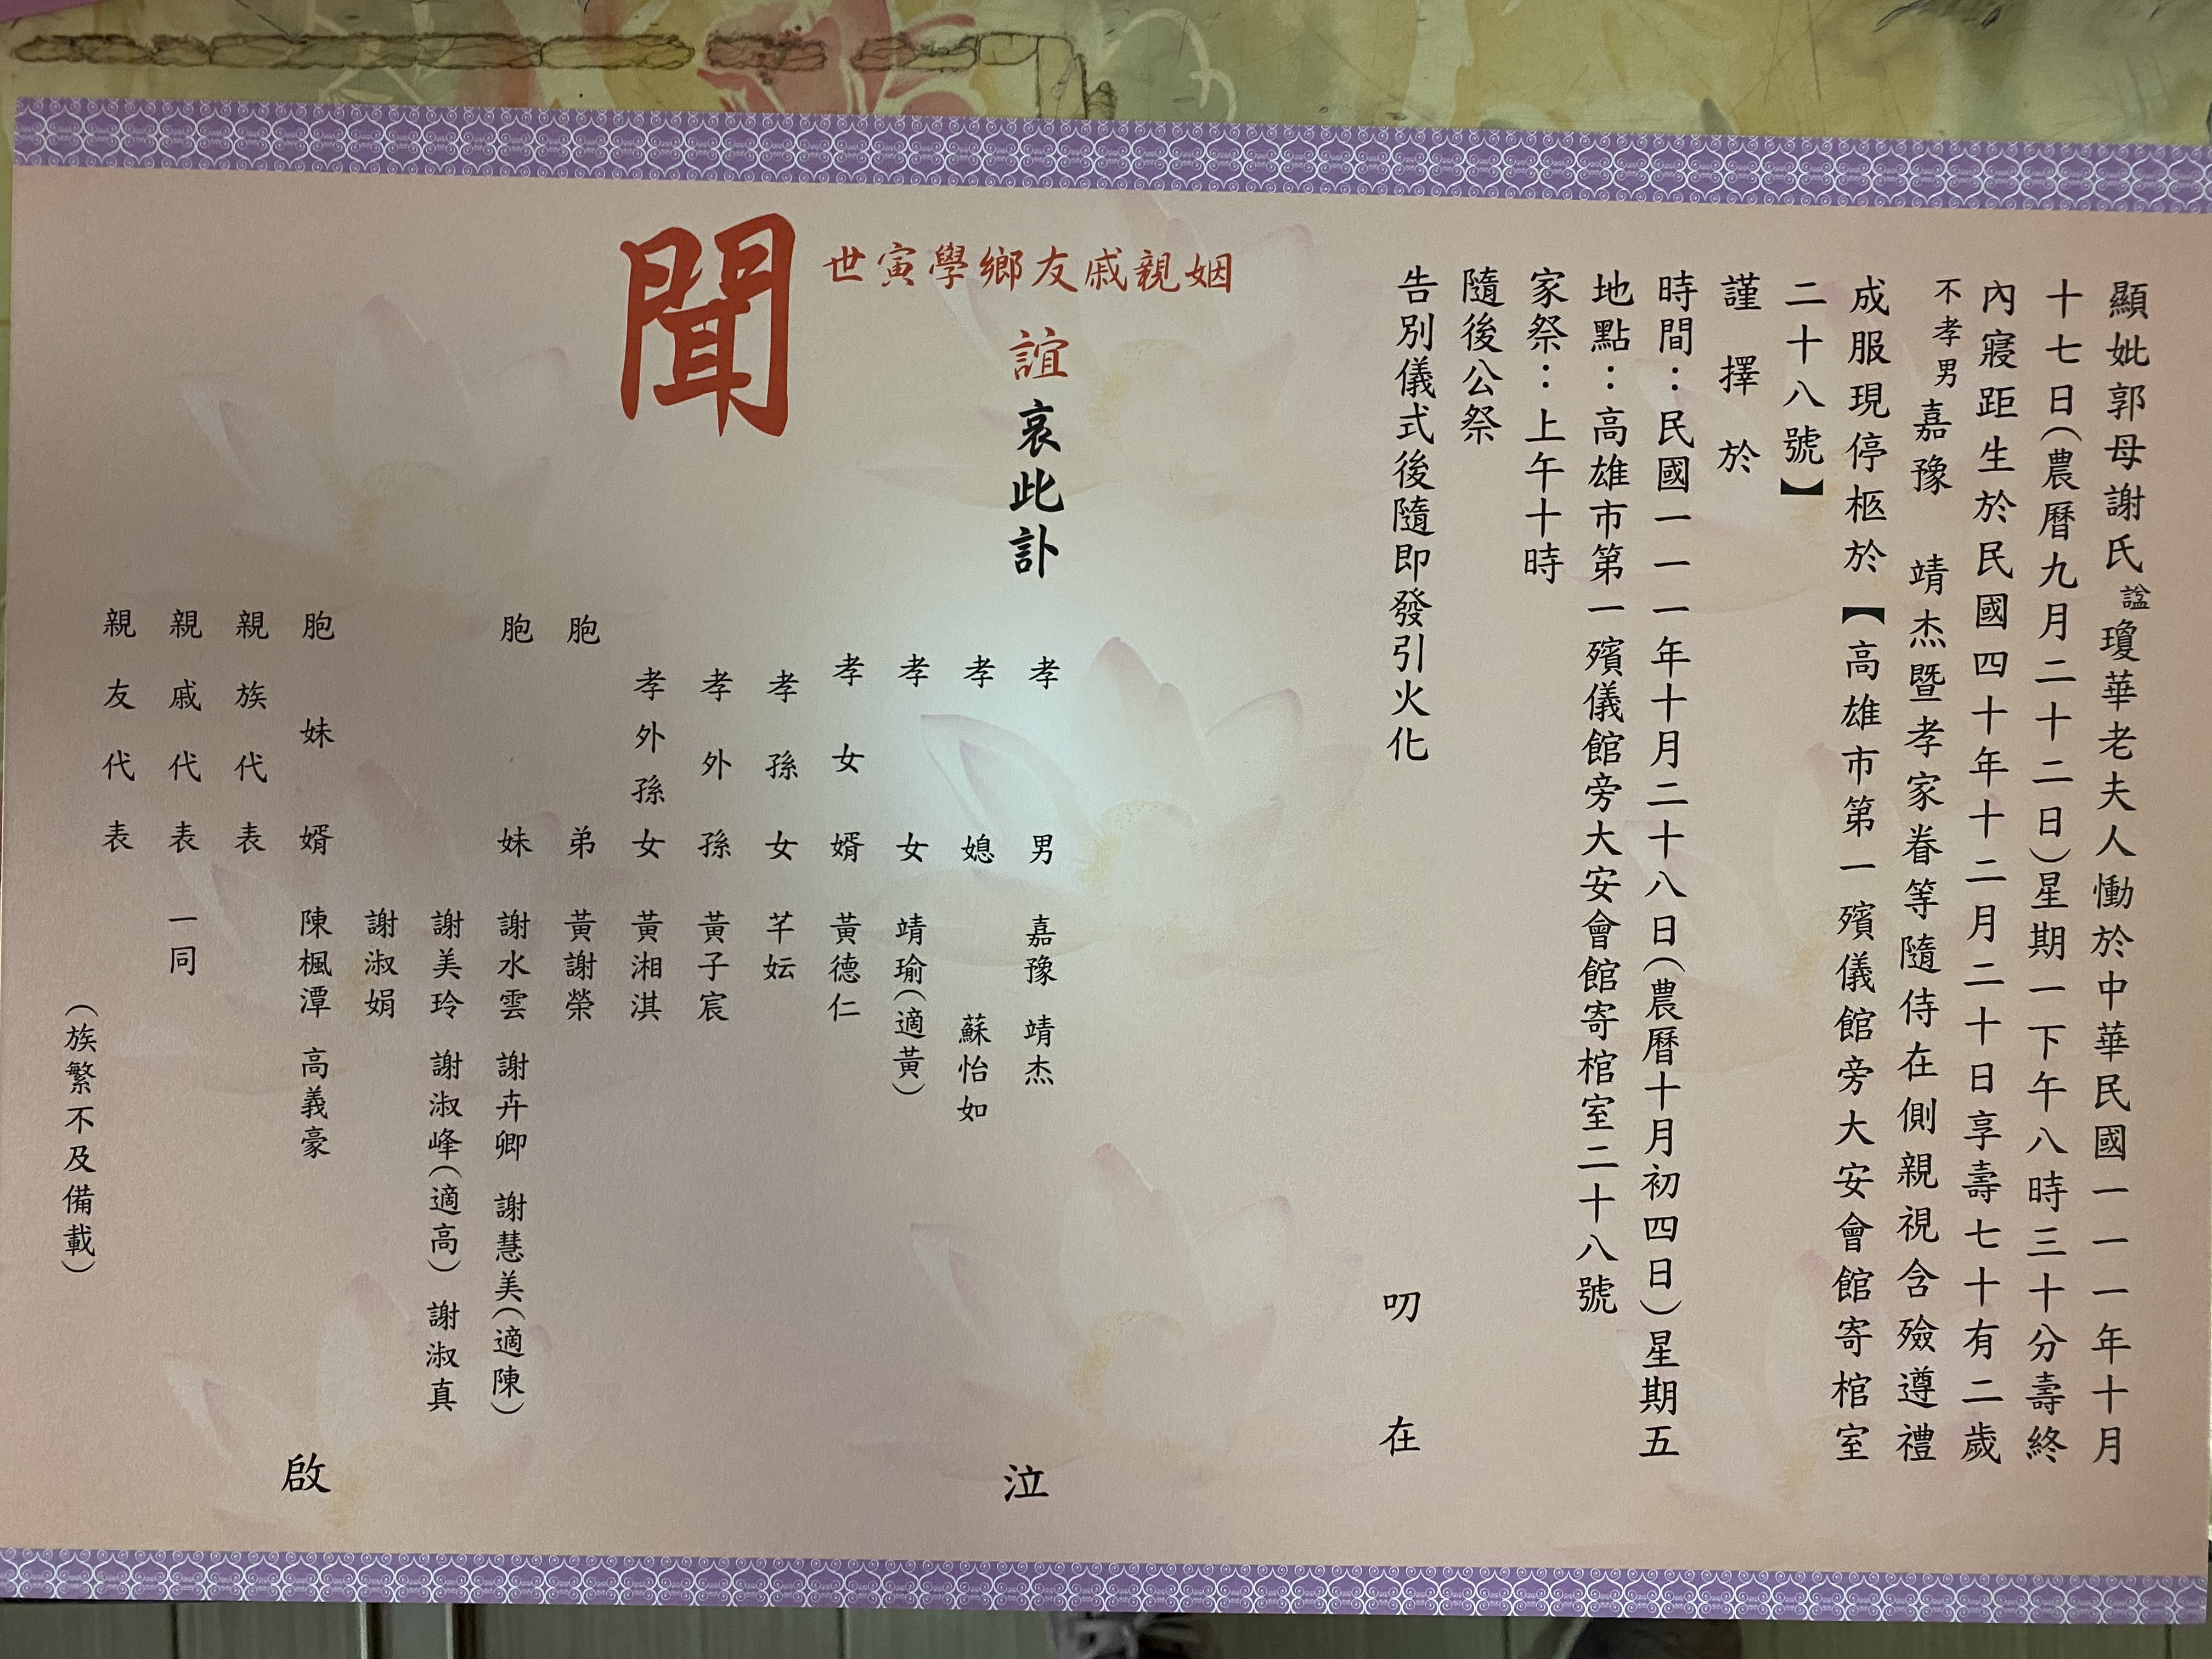 顯妣郭母謝氏諡瓊華老夫人慟於中華民國一一一年十月
十七日(農曆九月二十二日)星期一下午八時三十分壽終
內寢距生於民國四十年十二月二十日享壽七十有二歲
不孝男嘉豫 靖杰暨孝家眷等隨侍在側親視含殮遵禮
成服現停柩於【高雄市第一殯儀館旁大安會館寄棺室
二十八號】
謹擇於
時間：民國一一一年十月二十八日(農曆十月初四日)星期五
地點：高雄市第一殯儀館旁大安會館寄棺室二十八號
家祭：上午十時
隨後公祭
告別儀式後隨即發引火化 叨在
姻親戚友鄉學寅世
誼哀此訃
聞
孝男 嘉豫 靖杰 泣
孝媳 蘇怡如
孝女 靖瑜(適黃)
孝女婿 黃德仁
孝孫女 芊妘
孝外孫 黃子宸
孝外孫女 黃湘淇
胞弟 黃謝榮
胞妹 謝水雲 謝卉卿 謝慧美(適陳)
謝美玲 謝淑峰(適高) 謝淑真
謝淑娟
胞妹婿 陳楓潭 高義豪 啟
親族代表
親戚代表 一同
親友代表
(族繁不及備載)